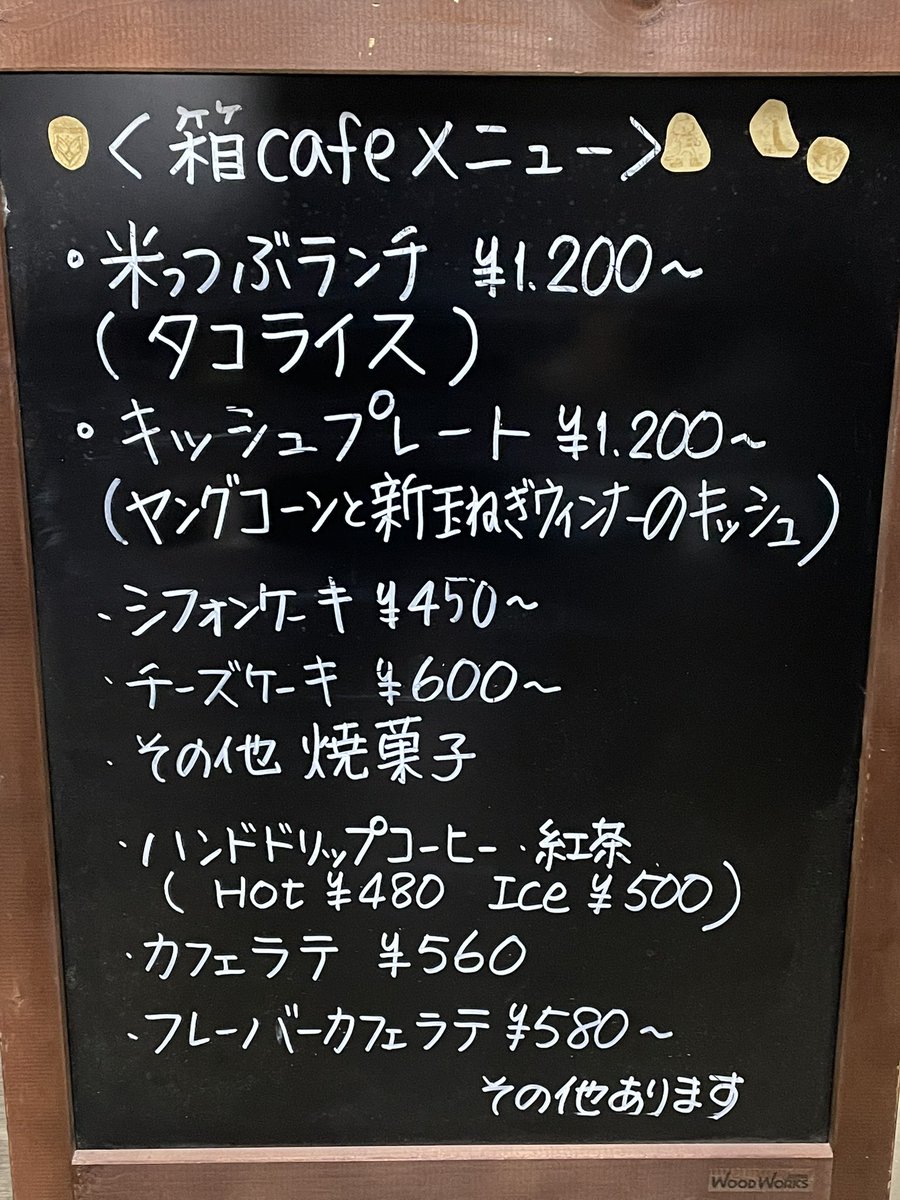 <箱cafeメニュー>
・米っつぶランチ ¥1.200~
(タコライス)
・キッシュプレート ¥1.200~
(ヤングコーンと新玉ねぎウィンナーのキッシュ)
・シフォンケーキ ¥450~
・チーズケーキ ¥600~
・その他 焼菓子
・ハンドドリップコーヒー・紅茶
(Hot ¥480 Ice ¥500)
・カフェラテ ¥560
・フレーバーカフェラテ ¥580~
その他あります
WOODWORKS